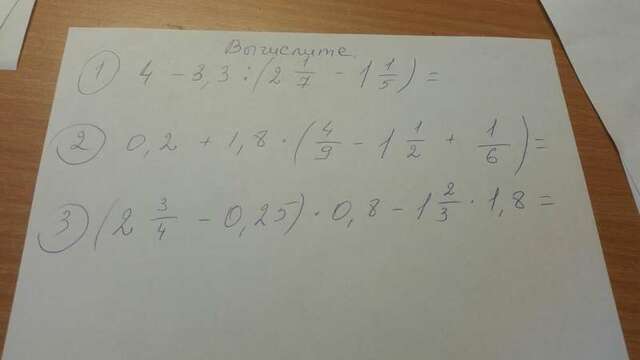 Вычислите.
1) 4 - 3,3 : (2 1/7 - 1 1/5) =
2) 0,2 + 1,8 · (4/9 - 1 1/2 + 1/6) =
3) (2 3/4 - 0,25) · 0,8 - 1 2/3 · 1,8 =